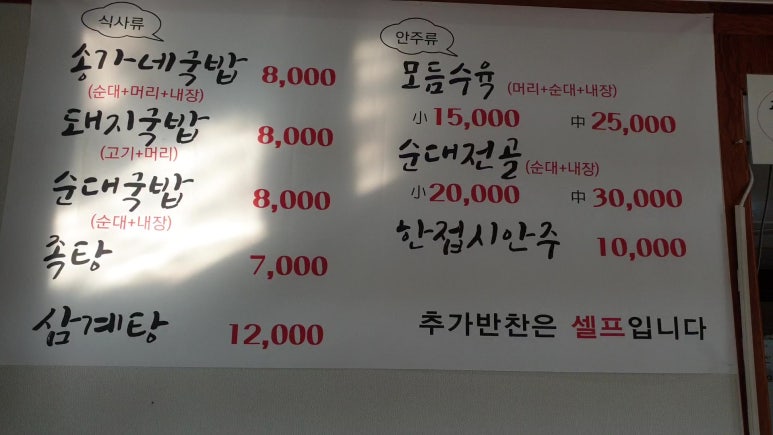 식사류
송가네국밥 8,000
(순대+머리+내장)
돼지국밥 8,000
(고기+머리)
순대국밥 8,000
(순대+내장)
족탕 7,000
삼계탕 12,000
안주류
모듬수육 (머리+순대+내장)
小 15,000 中 25,000
순대전골 (순대+내장)
小 20,000 中 30,000
한접시안주 10,000
추가반찬은 셀프입니다